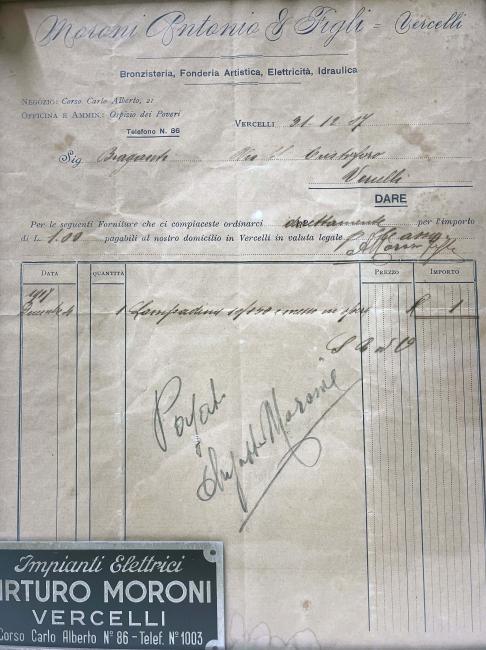 Moroni Antonio & Figli = Vercelli
Bronzisteria, Fonderia Artistica, Elettricità, Idraulica
Negozio: Corso Carlo Alberto, 21
Officina e Ammin.: Ospizio dei Poveri
Telefono N. 86
Vercelli 31-12-17
Sig. Via
Vercelli
DARE
Per le seguenti Forniture che ci compiaceste ordinarci direttamente per l'importo
di L. 1.00 pagabili al nostro domicilio in Vercelli in valuta legale
Data Quantità Prezzo Importo
1917
1 Lampadina e messa in 1
Moroni
Impianti Elettrici
ARTURO MORONI
VERCELLI
Corso Carlo Alberto N° 86 - Telef. N° 1003